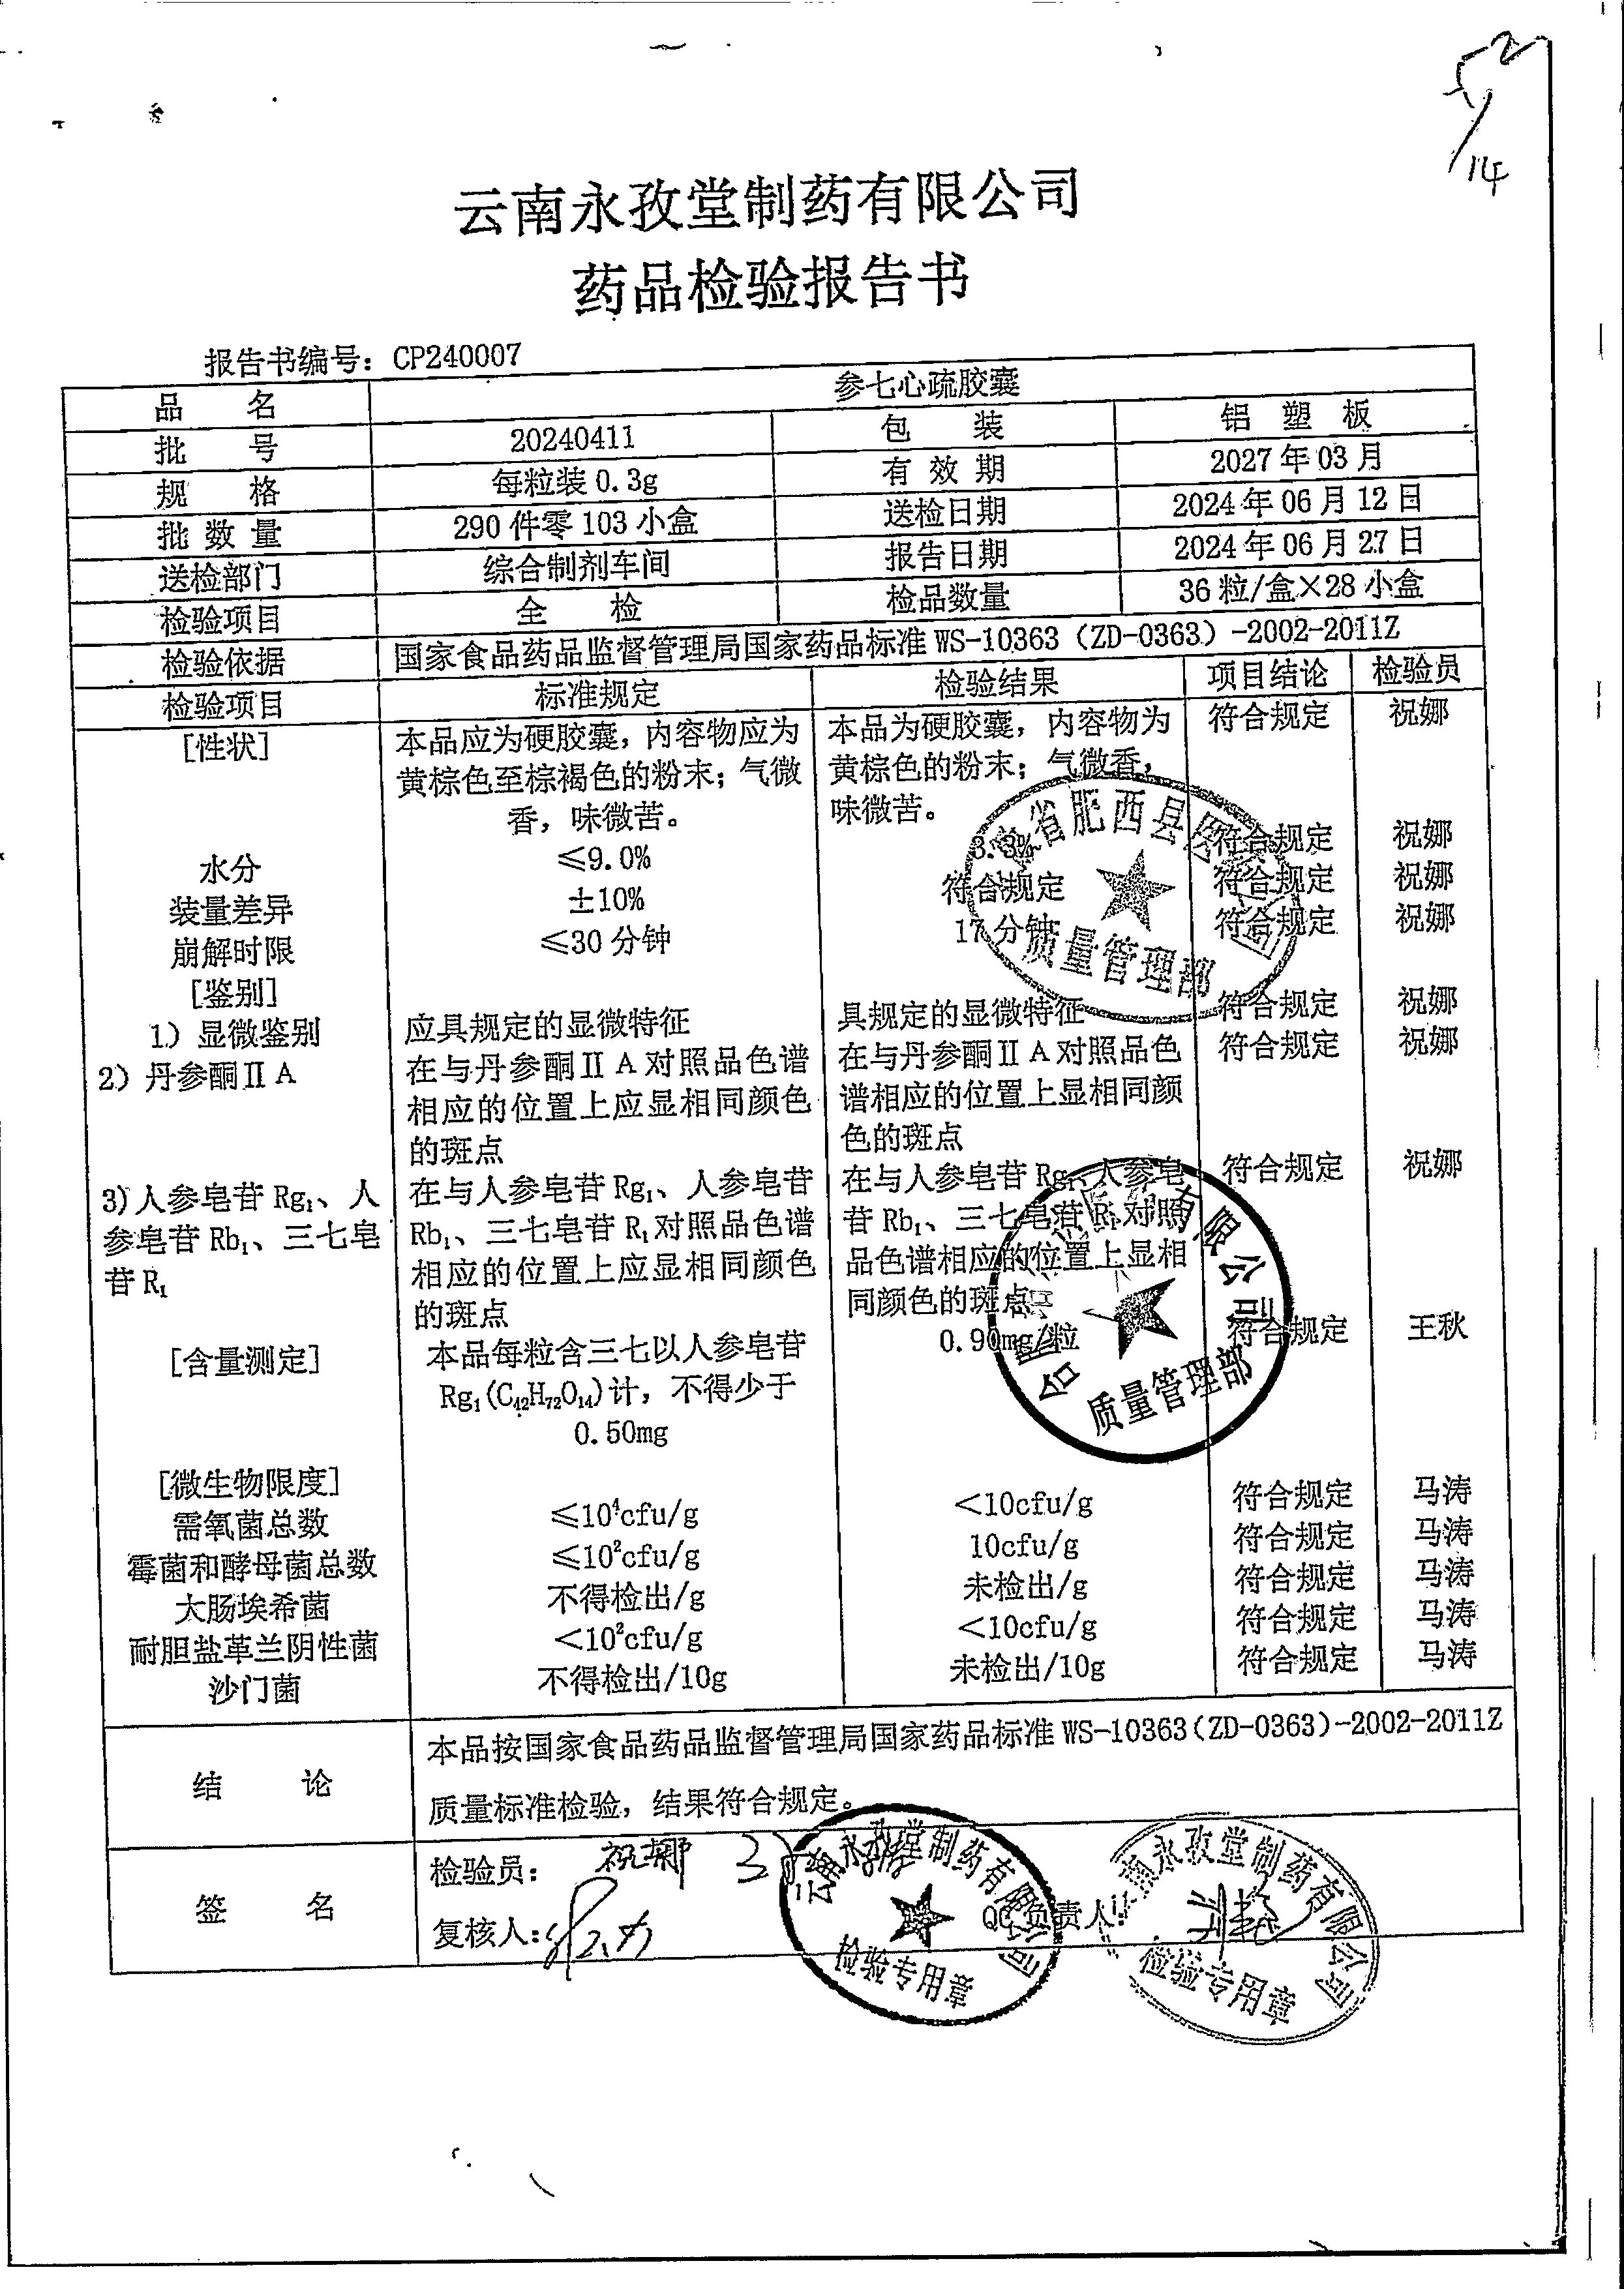 云南永孜堂制药有限公司
药品检验报告书
报告书编号：CP240007
品 名 参七心疏胶囊
批 号 20240411 包 装 铝 塑 板
规 格 每粒装 0.3g 有 效 期 2027 年 03 月
批 数 量 290 件零 103 小盒 送检日期 2024 年 06 月 12 日
送检部门 综合制剂车间 报告日期 2024 年 06 月 27 日
检验项目 全 检 检品数量 36 粒/盒×28 小盒
检验依据 国家食品药品监督管理局国家药品标准 WS-10363（ZD-0363）-2002-2011Z
检验项目 标准规定 检验结果 项目结论 检验员
[性状] 本品应为硬胶囊，内容物应为 本品为硬胶囊，内容物为 符合规定 祝娜
黄棕色至棕褐色的粉末；气微 黄棕色的粉末；气微香，
香，味微苦。 味微苦。
水分 ≤9.0% 3.3% 符合规定 祝娜
装量差异 ±10% 符合规定 符合规定 祝娜
崩解时限 ≤30 分钟 17 分钟 符合规定 祝娜
[鉴别]
1）显微鉴别 应具规定的显微特征 具规定的显微特征 符合规定 祝娜
2）丹参酮ⅡA 在与丹参酮ⅡA对照品色谱 在与丹参酮ⅡA对照品色 符合规定 祝娜
相应的位置上应显相同颜色 谱相应的位置上显相同颜
的斑点 色的斑点
3)人参皂苷 Rg₁、人 在与人参皂苷 Rg₁、人参皂苷 在与人参皂苷 Rg₁、人参皂 符合规定 祝娜
参皂苷 Rb₁、三七皂 Rb₁、三七皂苷 R₁对照品色谱 苷 Rb₁、三七皂苷 R₁对照
苷 R₁ 相应的位置上应显相同颜色 品色谱相应的位置上显相
的斑点 同颜色的斑点
[含量测定] 本品每粒含三七以人参皂苷 0.90mg/粒 符合规定 王秋
Rg₁(C₄₂H₇₂O₁₄)计，不得少于
0.50mg
[微生物限度]
需氧菌总数 ≤10⁴cfu/g <10cfu/g 符合规定 马涛
霉菌和酵母菌总数 ≤10²cfu/g 10cfu/g 符合规定 马涛
大肠埃希菌 不得检出/g 未检出/g 符合规定 马涛
耐胆盐革兰阴性菌 <10²cfu/g <10cfu/g 符合规定 马涛
沙门菌 不得检出/10g 未检出/10g 符合规定 马涛
结 论 本品按国家食品药品监督管理局国家药品标准 WS-10363(ZD-0363)-2002-2011Z
质量标准检验，结果符合规定。
签 名 检验员： 祝娜
复核人: QC 负责人：
省肥西县
质量管理部
有限公司
质量管理部
云南永孜堂制药有限公司
检验专用章
云南永孜堂制药有限公司
检验专用章